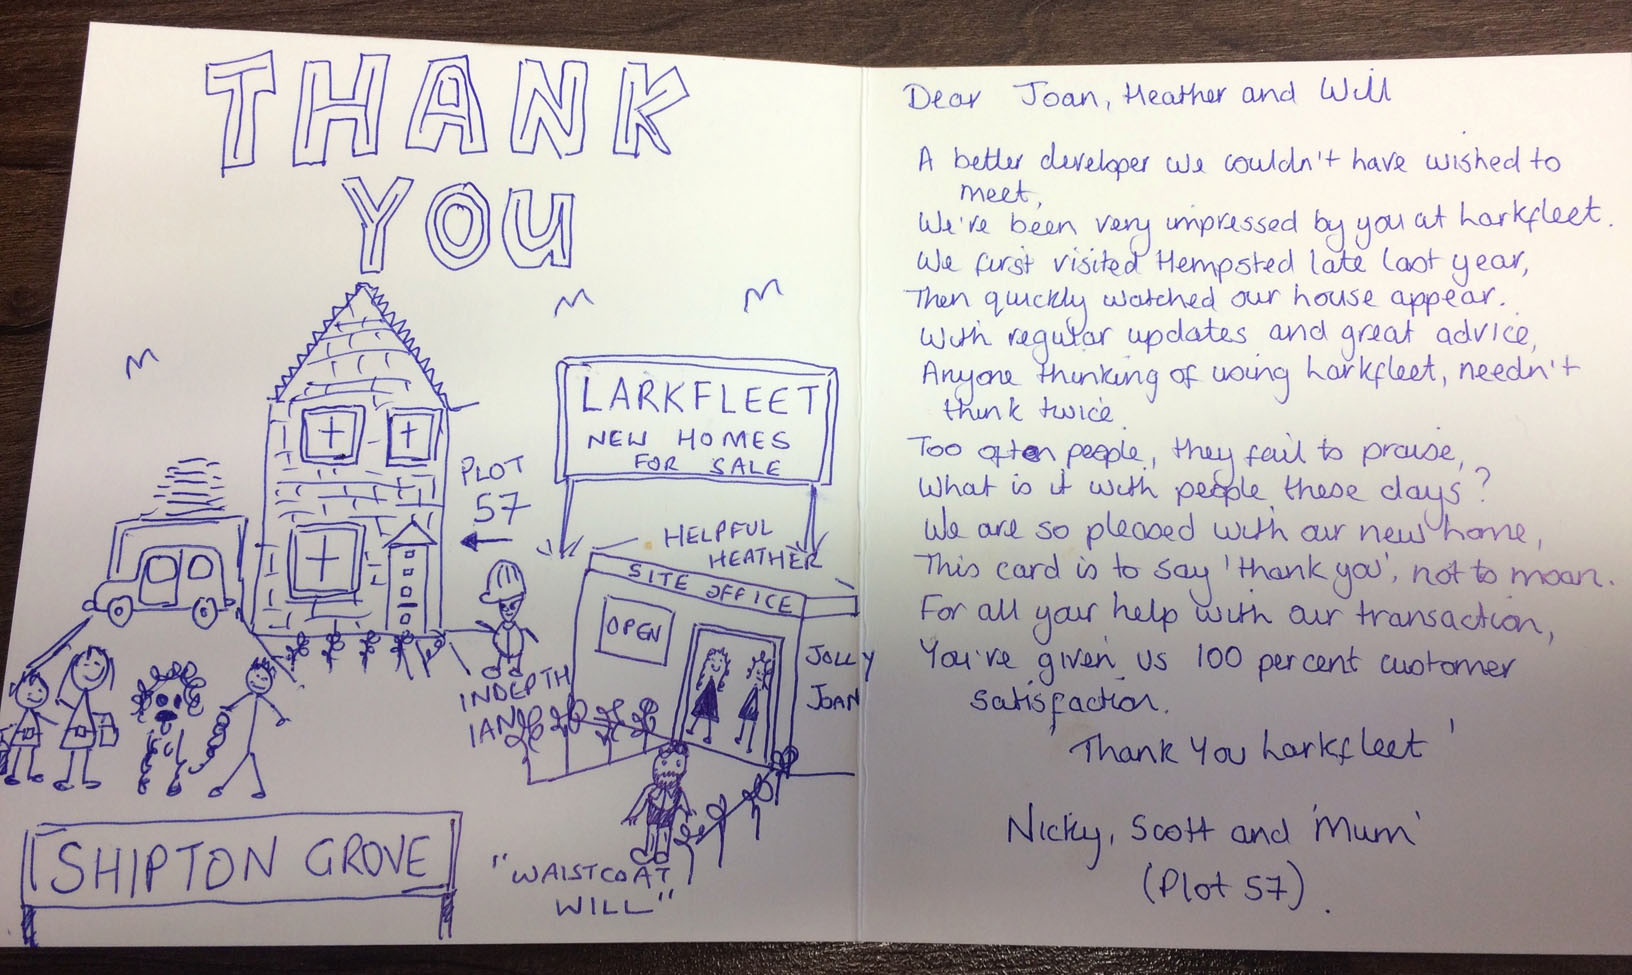 THANK
YOU
LARKFLEET
NEW HOMES
FOR SALE
PLOT
57
HELPFUL
HEATHER
SITE OFFICE
OPEN
JOLLY
JOAN
INDEPTH
IAN
"WAISTCOAT
WILL"
SHIPTON GROVE
Dear Joan, Heather and Will
A better developer we couldn't have wished to
meet,
We've been very impressed by you at Larkfleet.
We first visited Hempsted late last year,
Then quickly watched our house appear.
With regular updates and great advice,
Anyone thinking of using Larkfleet, needn't
think twice.
Too often people, they fail to praise,
What is it with people these days?
We are so pleased with our new home,
This card is to say 'thank you', not to moan.
For all your help with our transaction,
You've given us 100 percent customer
satisfaction.
'Thank You Larkfleet'
Nicky, Scott and 'Mum'
(Plot 57).